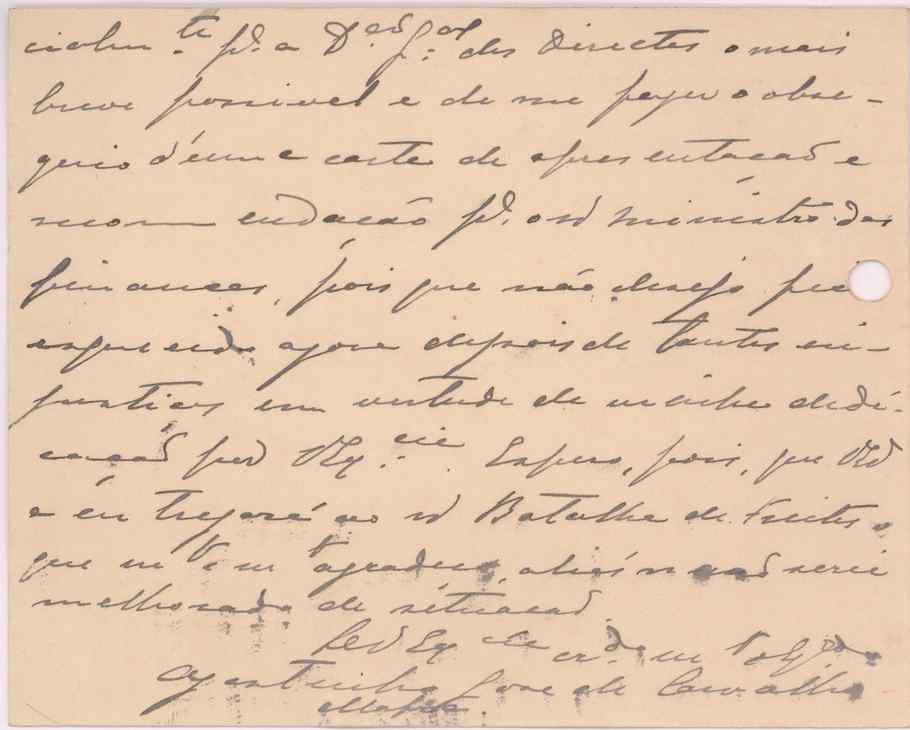 cialm.te p.a a D.ção G.al dos Directos o mais
breve possivel e de me fazer o obse-
quio d'uma carta de apresentação e
recommendação p.a o sr Ministro das
Finanças, pois que não desejo ficar
esquecido agora depois de tantas in-
justiças em virtude da minha dedi-
cação por V Ex.cia. Espero, pois, que V Ex
a entregará ao sr Batalha de Freitas o
que m.to m.to agradeço, aliás não serei
melhorado de situação
De V Ex.cia cr.do m.to obg.do
Agostinho José de Carvalho